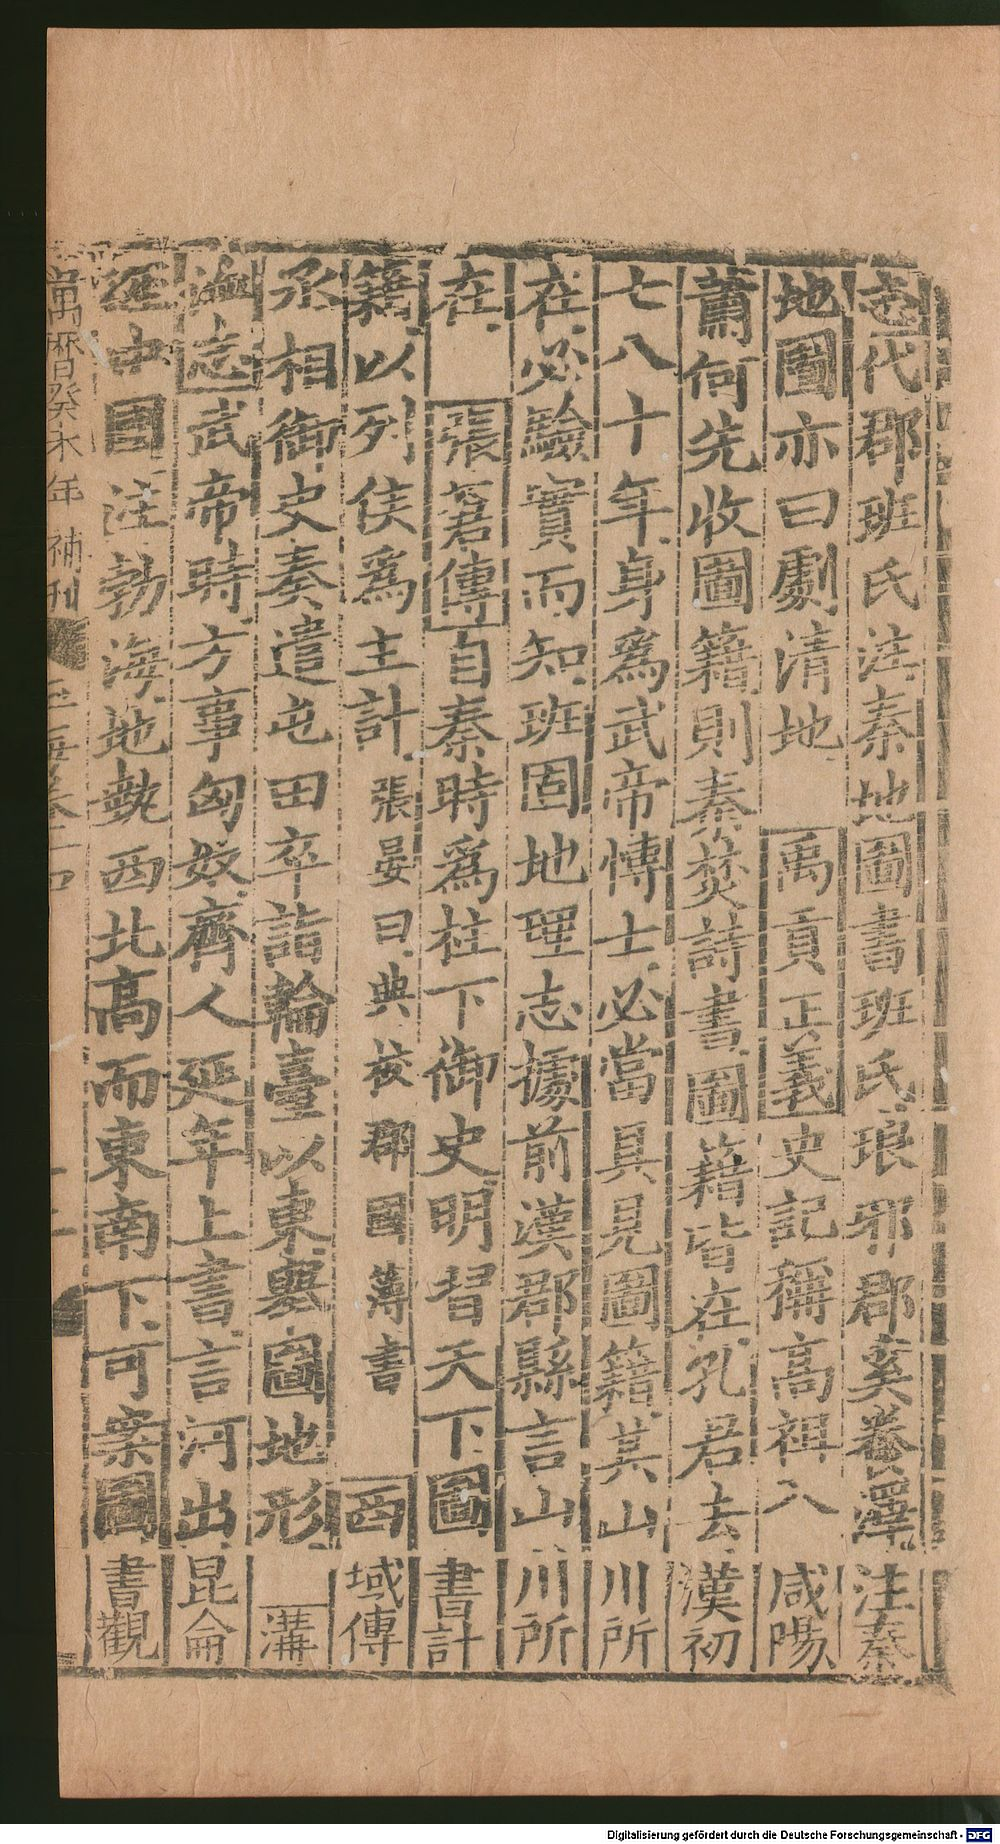 志代郡班氏注秦地圖書班氏琅邪郡奚養澤注秦
地圖亦曰劇清地 禹貢正義史記稱高祖入咸陽
蕭何先收圖籍則秦焚詩書圖籍皆在孔君去漢初
七八十年身爲武帝博士必當具見圖籍其山川所
在必驗實而知班固地理志據前漢郡縣言山川所
在 張蒼傳自秦時爲柱下御史明習天下圖書計
籍以列侯爲主計張晏曰典校郡國簿書 西域傳
丞相御史奏遣屯田卒詣輪臺以東輿圖地形 溝
洫志武帝時方事匈奴齊人延年上書言河出昆侖
經中國注勃海地埶西北高而東南下可案圖書觀
萬曆癸未年補刊 玉海卷十四
Digitalisierung gefördert durch die Deutsche Forschungsgemeinschaft - DFG